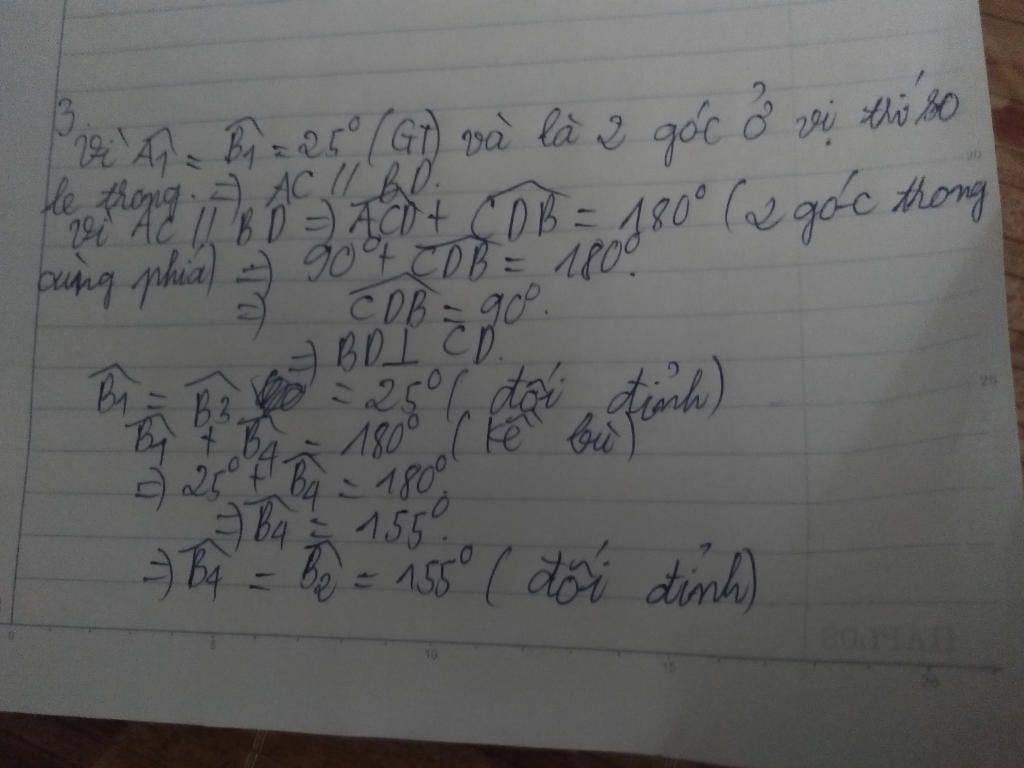 3.
Vì Â1 = B̂1 = 25° (GT) và là 2 góc ở vị trí so
le trong. => AC // BD.
Vì AC // BD => ACD̂ + CDB̂ = 180° (2 góc trong
cùng phía) => 90° + CDB̂ = 180°.
=> CDB̂ = 90°.
=> BD ⊥ CD.
B̂1 = B̂3 = 25° (đối đỉnh)
B̂1 + B̂4 = 180° (kề bù)
=> 25° + B̂4 = 180°
=> B̂4 = 155°.
=> B̂4 = B̂2 = 155° (đối đỉnh)
5 10 15 20